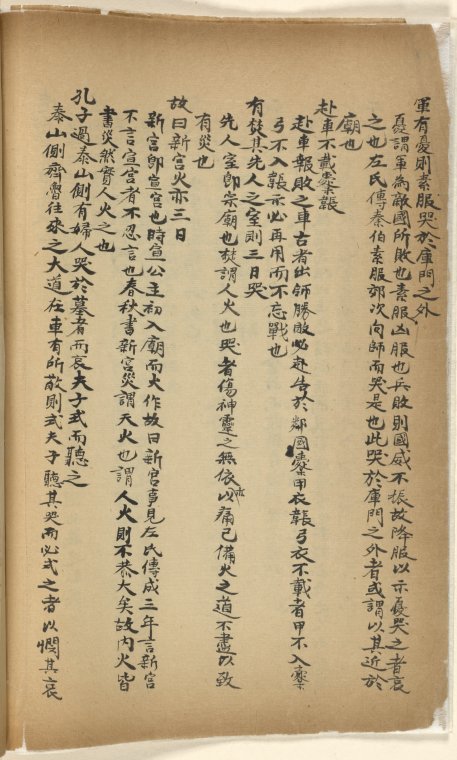 軍有憂則素服哭於庫門之外
憂謂軍為敵國所敗也素服凶服也兵敗則國威不振故降服以示憂哭之者哀
之也左氏傳秦伯素服郊次向師而哭是也此哭於庫門之外者或謂以其近於
廟也
赴車不載櫜韔
赴車報敗之車古者出師勝敗必赴告於鄰國櫜甲衣韔弓衣不載者甲不入櫜
弓不入韔示必再用而不忘戰也
有焚其先人之室則三日哭
先人室即宗廟也焚謂人火也哭者傷神靈之無依亦以痛己備火之道不盡以致
有災也
故曰新宮火亦三日
新宮即宣宮也時宣公主初入廟而火作故曰新宮事見左氏傳成三年言新宮
不言宣宮者不忍言也春秋書新宮災謂天火也謂人火則不恭大矣故內火皆
書災然實人火之也
孔子過泰山側有婦人哭於墓者而哀夫子式而聽之
泰山側齊魯往來之大道在車有所敬則式夫子聽其哭而必式之者以憫其哀